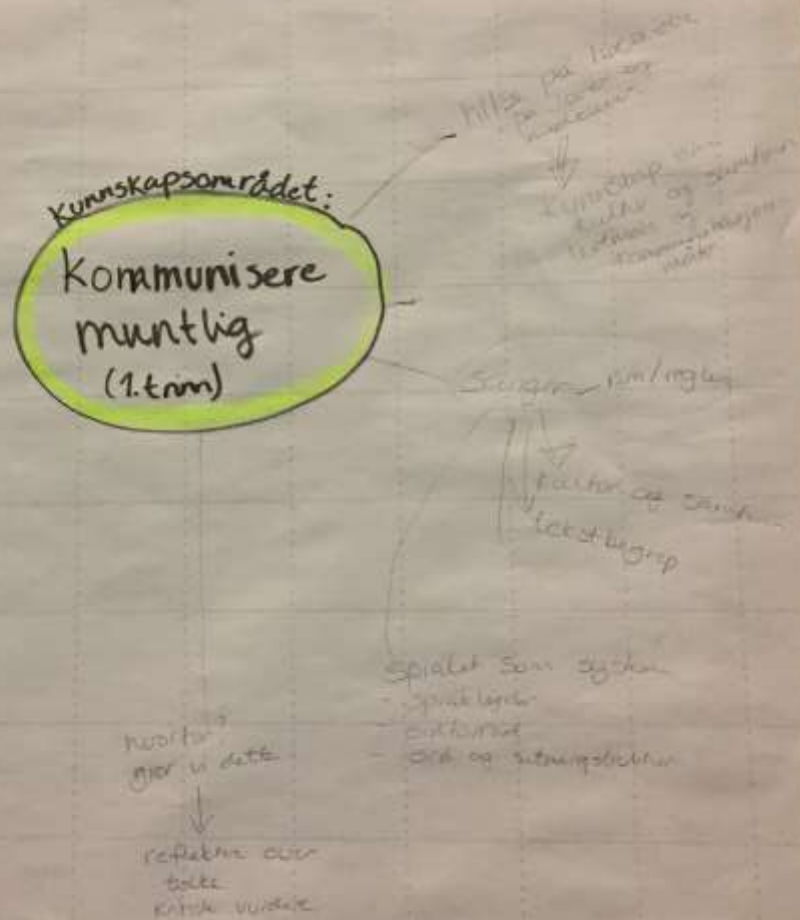 Kunnskapsområdet:
Kommunisere
muntlig
(1. trinn)
på
Kunnskap om
kultur og samfunn
og
rim/regler
kultur og samfunn
tekstbegrep
språket som system
- språklyder
- ordforråd
- ord og setningsstruktur
hvorfor?
gjør vi dette
reflektere over
tolke
kritisk vurdere